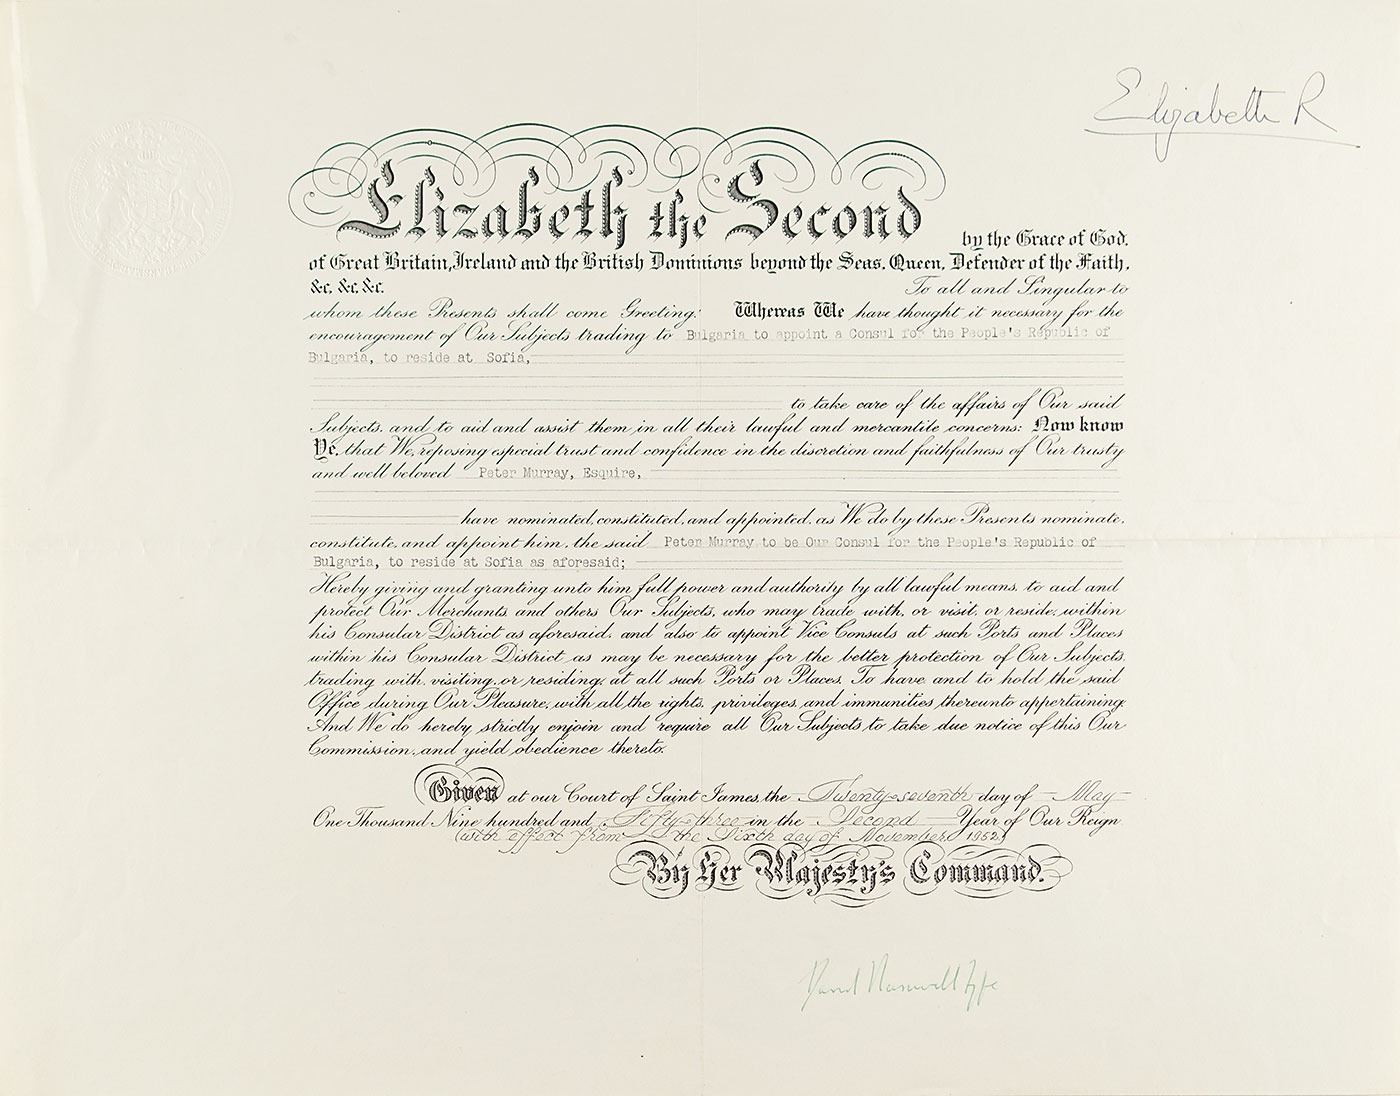 Elizabeth R
Elizabeth the Second by the Grace of God,
of Great Britain, Ireland and the British Dominions beyond the Seas, Queen, Defender of the Faith,
&c, &c, &c. To all and Singular to
whom these Presents shall come Greeting: Whereas We have thought it necessary for the
encouragement of Our Subjects trading to Bulgaria to appoint a Consul for the People's Republic of
Bulgaria, to reside at Sofia,
to take care of the affairs of Our said
Subjects, and to aid and assist them in all their lawful and mercantile concerns: Now know
Ye, that We, reposing especial trust and confidence in the discretion and faithfulness of Our trusty
and well beloved Peter Murray, Esquire,
have nominated, constituted, and appointed, as We do by these Presents nominate,
constitute, and appoint him, the said Peter Murray to be Our Consul for the People's Republic of
Bulgaria, to reside at Sofia as aforesaid;
Hereby giving and granting unto him full power and authority by all lawful means, to aid and
protect Our Merchants and others Our Subjects, who may trade with, or visit, or reside, within
his Consular District as aforesaid, and also to appoint Vice Consuls at such Ports and Places
within his Consular District as may be necessary for the better protection of Our Subjects,
trading with, visiting, or residing, at all such Ports or Places. To have and to hold the said
Office during Our Pleasure, with all the rights, privileges, and immunities, thereunto appertaining.
And We do hereby strictly enjoin and require all Our Subjects to take due notice of this Our
Commission, and yield obedience thereto.
Given at our Court of Saint James, the Twenty-seventh day of May
One Thousand Nine hundred and Fifty-three in the Second Year of Our Reign
(with effect from the Sixth day of November, 1952)
By Her Majesty's Command.
David Maxwell Fyfe